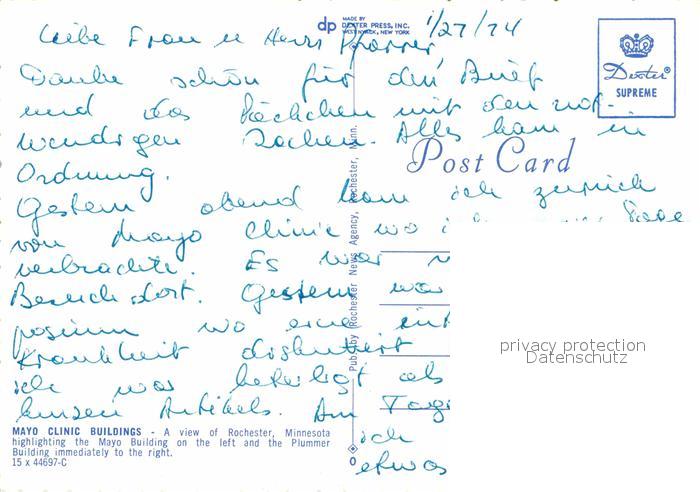 dp MADE BY
DEXTER PRESS, INC.
WEST NYACK, NEW YORK
1/27/74
Liebe Frau u Herr
Dexter®
SUPREME
Post Card
Danke schön für den Brief
und das Päckchen mit den not-
wendigen Sachen. Alles kam in
Ordnung.
Gestern abend kam ich zurück
von Mayo Clinic wo
verbrachte. Es war
Besuch dort. Gestern war
posium wo eine
Krankheit diskutiert
ich war beteiligt als
kurzen Artikels. Am Tage
ich
etwas
Pub. by Rochester News Agency, Rochester, Minn.
privacy protection
Datenschutz
MAYO CLINIC BUILDINGS - A view of Rochester, Minnesota
highlighting the Mayo Building on the left and the Plummer
Building immediately to the right.
15 x 44697-C